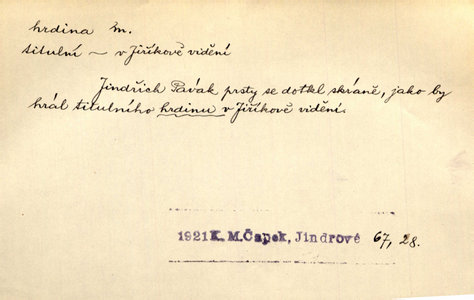 hrdina m.
titulní ~ v Jiříkově vidění
Jindřich Pavák prsty se dotkl skráně, jako by
hrál titulního hrdinu v Jiříkově vidění.
1921 K. M. Čapek, Jindrové 67, 28.